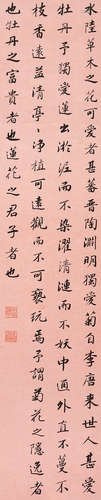 水陸草木之花可愛者甚蕃晉陶淵明獨愛菊自李唐来世人甚愛
牡丹予獨愛蓮出淤泥而不染濯清漣而不妖中通外直不蔓不
枝香遠益清亭亭淨植可遠觀而不可褻玩焉予謂菊花之隱逸者
也牡丹之富貴者也蓮花之君子者也